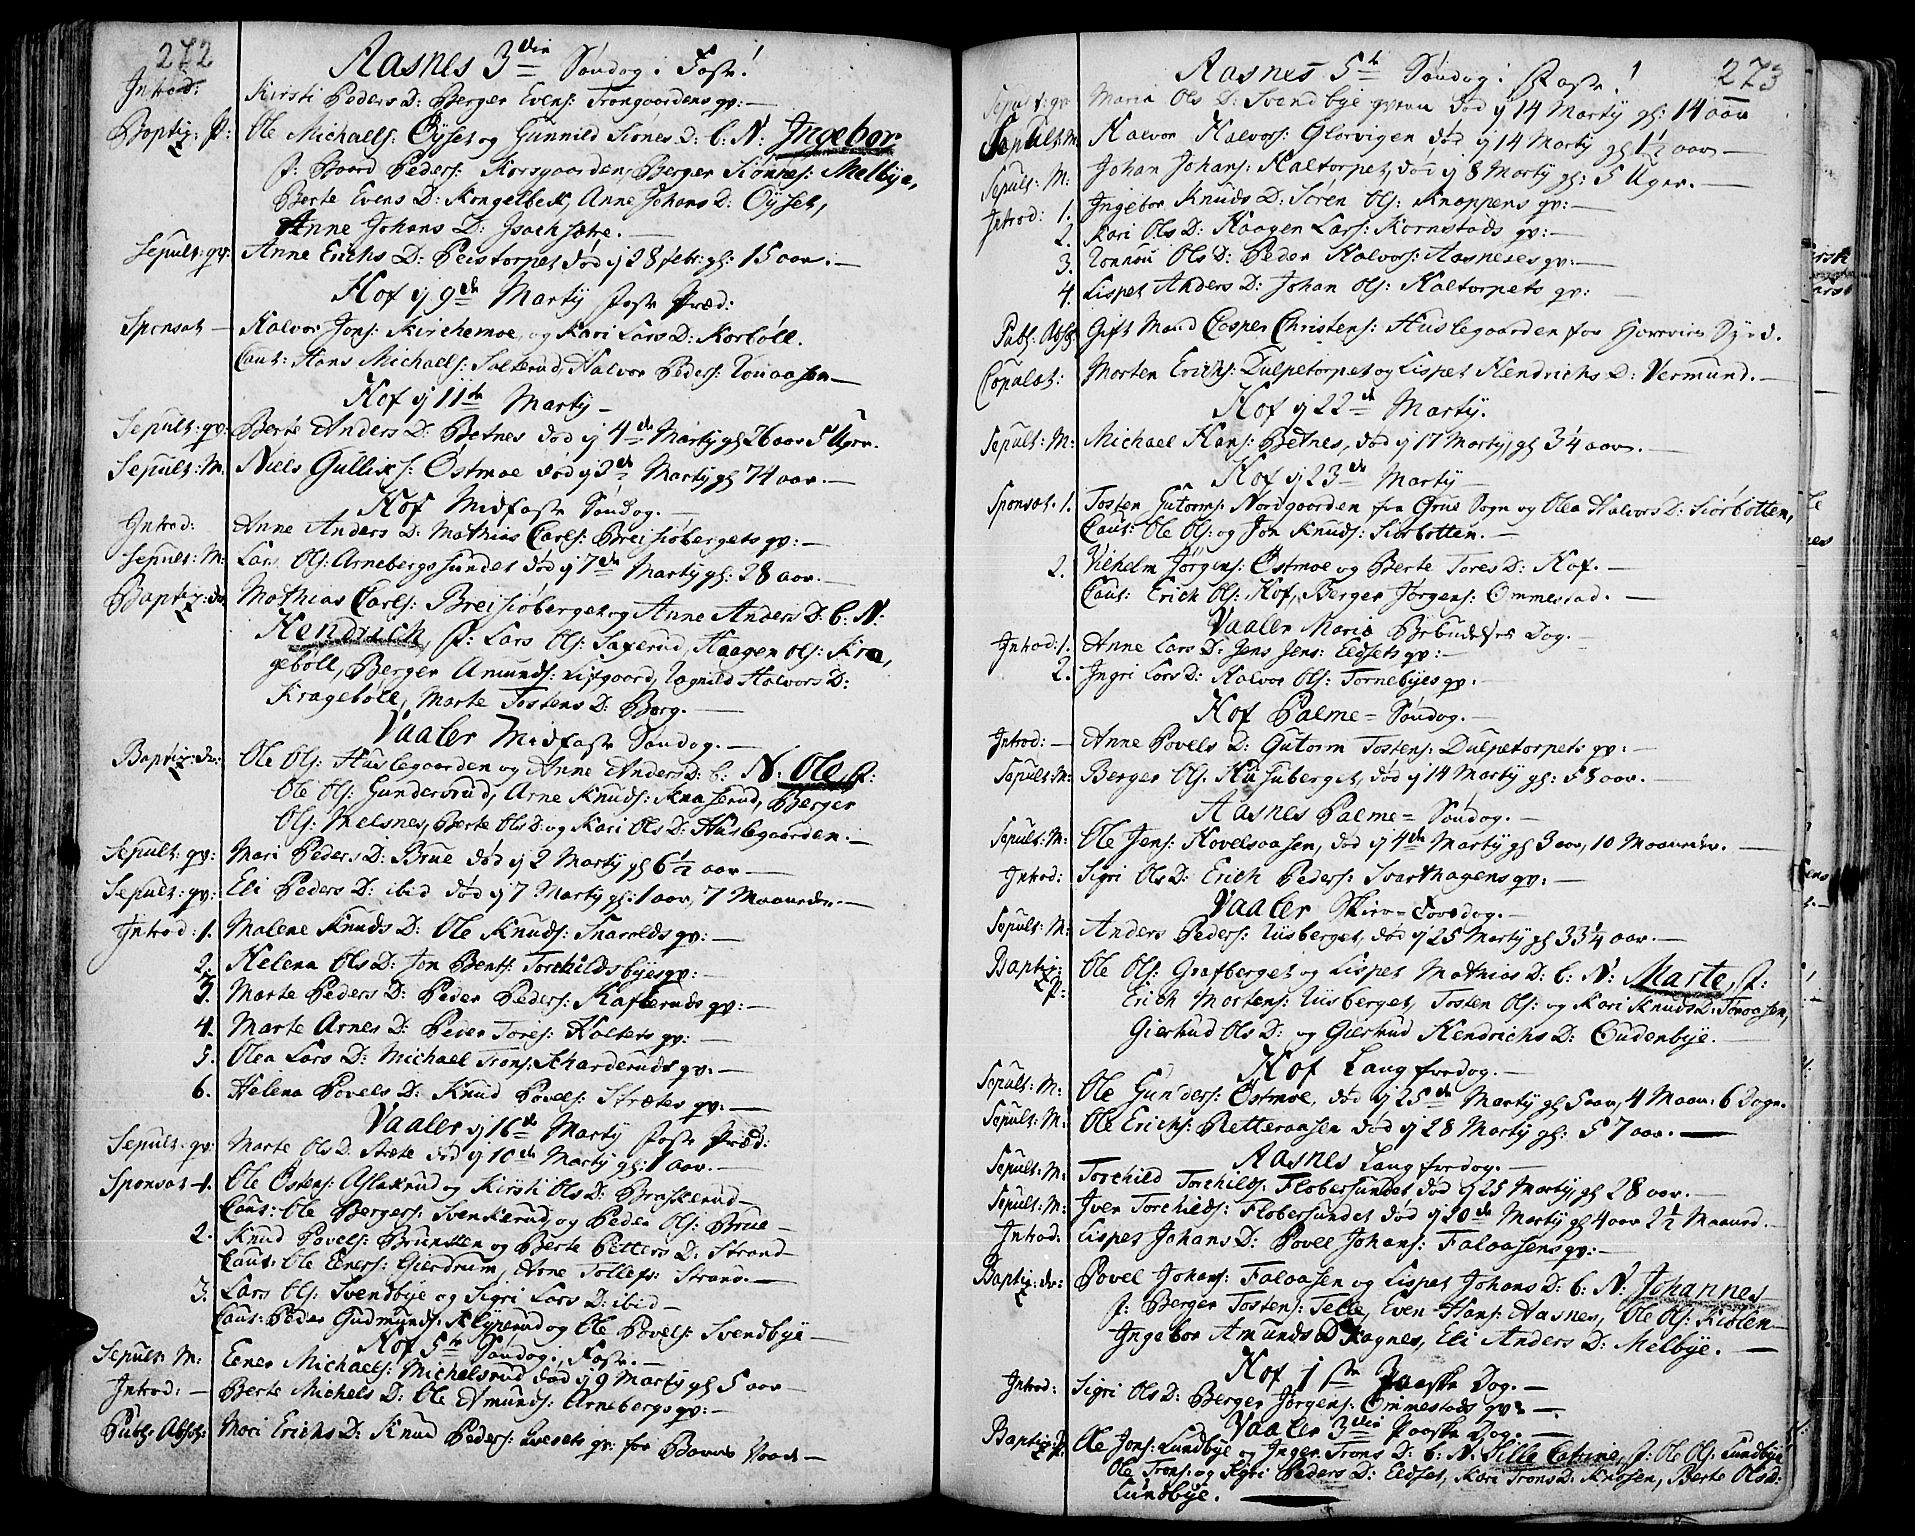 272
Aasnes 3die Søndag i Faste!
Introd: Kirsti Peders D: Berger Evens: Trongaardens qv: —
Baptiz: P: Ole Michaels: Øyset og Gunnild Siønes D: b: N: Ingebor
f: Baard Peders: Korsgaarden, Berger Siønnes: Melbye,
Berte Evens D: Kongelbek, Anne Johans D: Øyset,
Anne Johans D: Isachsætre. —
Sepult: qv: Anne Erichs D: Peistorpet død ij 28 febr: gl: 15 aar. —
Hof ij 9de Martÿ Faste Præd:
Sponsat — Halvor Jons: Kirchemoe, og Kari Lars D: Korbøll.
Caut: Hans Michaels: Salterud, Halvor Peders: Rouaasen —
Hof ij 11te Martÿ —
Sepult: qv: Berte Anders D: Betnes død ij 4de Martÿ gl 26 aar 5 Uger.
Sepult: M: Niels Gulliks: Østmoe død ij 2de Martÿ gl 74 aar. —
Hof Midfaste Søndag. —
Introd: Anne Anders D: Mathias Carls: Breisiøbergets qv: —
Sepult: M: Lars Ols: Arnebergsundet død ij 7de Martÿ gl: 28 aar. —
Baptiz: dr: Mathias Carls: Breisiøberget og Anne Anders D: b: N:
Hendrich, f: Lars Ols: Saxerud, Haagen Ols: Kra,
gebøll, Berger Amunds: Lifgaard, Ragnild Halvors D:
Kragebøll, Marte Tostens D: Berg. —
Vaaler Midfaste Søndag. —
Baptiz: dr: Ole Ols: Huslegaarden og Anne Anders D: b: N: Ole f:
Ole Ols: Gundersrud, Arne Knuds: Knaserud, Berger
Ols: Melsnes, Berte Ols D: og Kari Ols D: Huslegaarden. —
Sepult: qv: Mari Peders D: Brue død ij 2 Martÿ gl 6½ aar —
Sepult: qv: Eli Peders D: ibid død ij 7 Martÿ gl: 1 aar, 7 Maaneder. —
Introd: 1. Malene Knuds D: Ole Knuds: Snarolds qv: —
2. Helena Ols D: Jon Bents: Torchildsbyes qv: —
3. Marte Peders D: Peder Peders: Kafteruds qv: —
4. Marte Arnes D: Peier Tores: Holtets qv: —
5. Olea Lars D: Michael Trons: Skarderuds qv: —
6. Helena Povels D: Knud Povels: Strætes qv: —
Vaaler ij 16de Martÿ Faste Præd:
Sepult: qv: Marte Ols D: Stræte død ij 10de Martÿ gl: 1 aar. —
Sponsat 1. Ole Østens: Aslakrud og Kirsti Ols D: Braskerud —
Caut: Ole Bergers: Svenkerud og Peder Ols: Brue —
2. Knud Povels: Brunsten og Berte Petters D: Strand —
Caut: Ole Eners: Gierdrum, Arne Tollefs: Strand. —
3. Lars Ols: Svendbye og Sigri Lars D: ibid —
Caut: Peder Gudmunds: Klyverud og Ole Povels: Svendbye —
Hof 5te Søndag i Faste. —
Sepult: M: Ener Michaels: Michelsrud død ij 9 Martÿ gl 5 aar —
Introd: — Berte Michels D: Ole Amunds: Arnebergs qv: —
Publ: Absol: Mari Erichs D: Knud Peders: qv: for
273
Aasnes 5te Søndag i Faste!
Sepult: qv: Maria Ols D: Svendbye død ij 14 Martÿ gl: 14 aar
Sepult: M: Halvor Halvors: Glorvigen død ij 14 Martÿ gl 1½ aar —
Sepult: M: Johan Johans: Haltorpet, død ij 8 Martÿ gl: 5 Uger. —
Introd: 1. Ingebor Knuds D: Søren Ols: Knappens qv: —
2. Kari Ols D: Haagen Lars: Kornstads qv: —
3. Rønnou Ols D: Peder Halvors: Aasneses qv: —
4. Lispet Anders D: Johan Ols: Haltorpets qv: —
Publ: Abs: Gift Mand Casper Christens: Huslegaarden for Horeries Synd.
Copulat: Morten Erichs: Dulpetorpet og Lispet Hendrichs D: Vermund. —
Hof ij 22de Martÿ.
Sepult: M: Michael Hans: Betnes, død ij 17 Martÿ, gl 3¼ aar. —
Hof ij 23de Martÿ —
Sponsat. 1. Tosten Gutorms: Nordgaarden fra Grue Sogn og Olea Halvors D: Siorbotten,
Caut: Ole Ols: og Jon Knuds: Siorbotten. —
2. Vilhelm Jørgens: Østmoe og Berte Tores D: Hof. —
Caut: Erich Ols: Hof, Berger Jørgens: Ommestad. —
Vaaler Mariæ Bebudelses Dag. —
Introd: 1. Anne Lars D: Jens Jens: Eldsets qv: —
2. Ingri Lars D: Halvor Ols: Tornebyes qv: —
Hof Palme = Søndag. —
Introd: — Anne Povels D: Gutorm Tostens: Dulpetorpets qv: —
Sepult: M: Berger Ols: Husuberget, død ij 14 Martÿ gl: 58 aar. —
Aasnes Palme = Søndag. —
Sepult: M: Ole Jens: Hovelsaasen, død ij 4de Martÿ gl 3 aar, 10 Maaneder. —
Introd: Sigri Ols D: Erich Peders: Svarthagens qv: —
Vaaler Skier = Torsdag. —
Sepult: M: Anders Peders: Riisberget, død ij 25 Martÿ gl 33¼ aar. —
Baptiz: P: Ole Ols: Grafberget og Lispet Mathias D: b: N: Marte, f:
Erich Mortens: Riisberget, Tosten Ols: og Kari Knuds D: Toraasen,
Giertrud Ols D: og Giertrud Hendrichs D: Oudenbye. —
Hof Langfredag. —
Sepult: M: Ole Gunders: Østmoe, død ij 25de Martÿ gl 5 aar, 4 Maan: 6 Dage.
Sepult: M: Ole Erichs: Retteraasen død ij 28 Martÿ gl: 57 aar. —
Aasnes Langfredag. —
Sepult: M: Torchild Torchilds: Flobersundet død ij 25 Martÿ, gl 28 aar. —
Sepult: M: Iver Torchilds: Flobersundet død ij 20de Martÿ gl 4 aar 2½ Maaned. —
Introd: Lispet Johans D: Povel Johans: Falaasens qv: —
Baptiz: dr: Povel Johans: Falaasen og Lispet Johans D: b: N: Johannes
f: Berger Tostens: Telle, Even Hans: Aasnes, Ole Ols: Kiølen —
Ingebor Amunds D: Hagnes, Eli Anders D: Melbye. —
Hof 1ste Paaske Dag. —
Introd: Sigri Ols D: Berger Jørgens: Ommestads qv: —
Vaaler 3die Paaske Dag. —
Baptiz: P: Ole Jons: Lundbye og Inger Trons D: b: N: Sille Catrine, f: Ole Ols: Lundbye
Ole Trons: og Sigri Peders D: Eldset, Kari Trons D: Knasen, Berte Ols D:
Lundbye. —